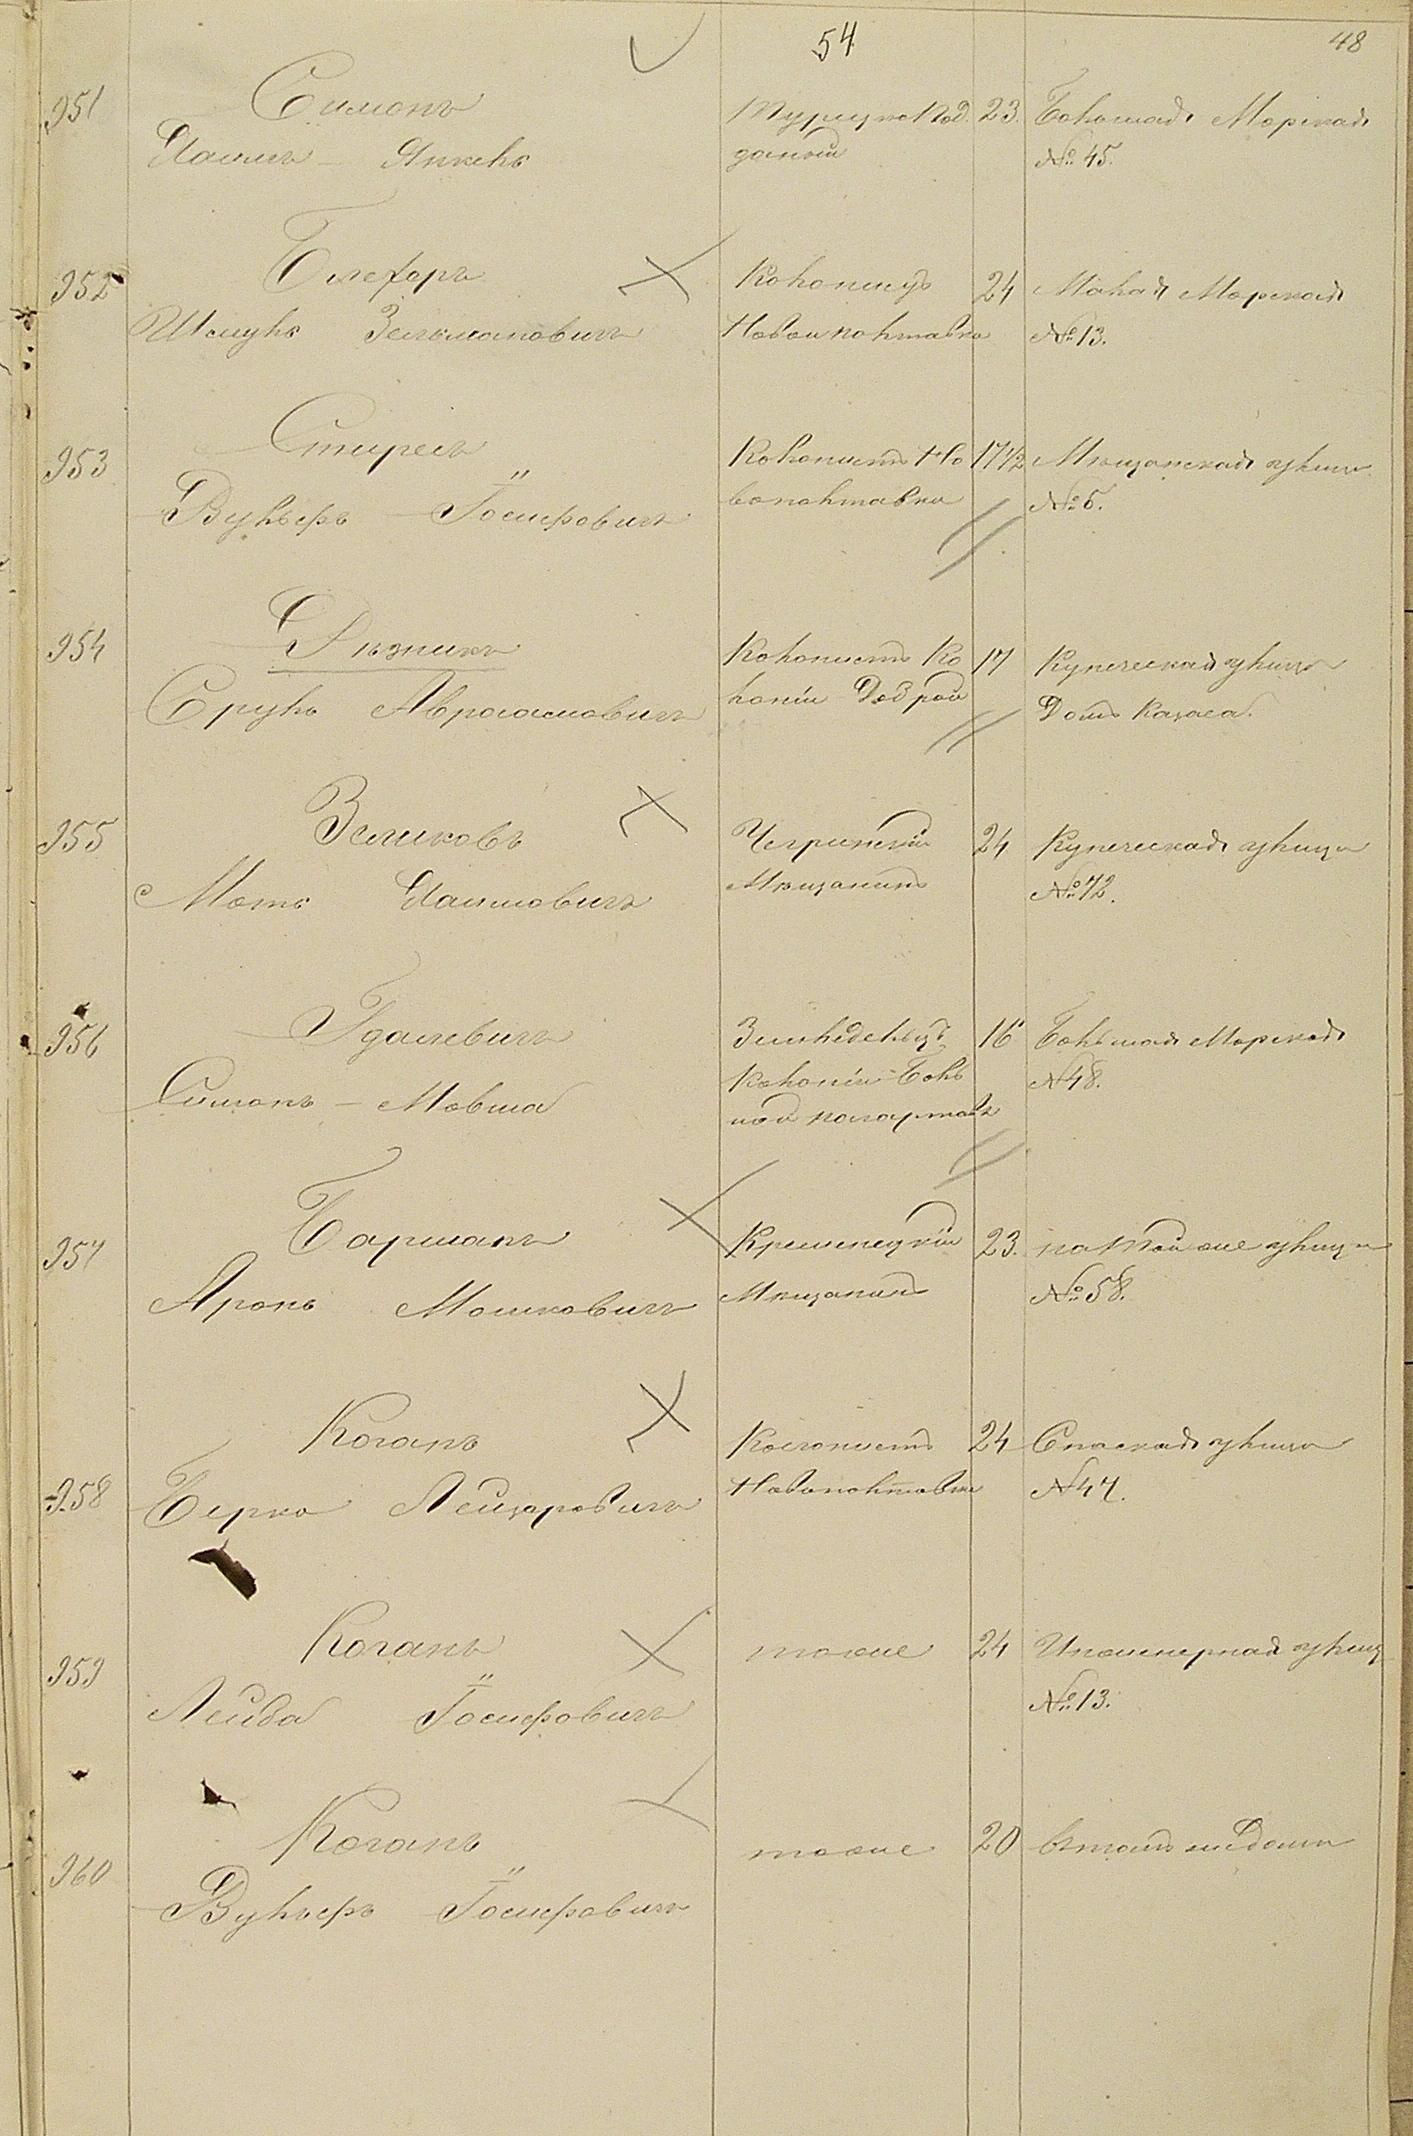 54
48
951
Симонъ
Хаимъ - Янкель
Турецко Под
даный
23.
Большая Морская
№ 45.
952
Блеферъ
Шмуль Зельмановичъ
Колонистъ
Новополтавки
24
Малая Морская
№ 13.
953
Стиресъ
Вульфъ Іосифовичъ
Колонистъ Но
вополтавки
17 1/2
Мѣщанская улица
№ 5.
954
Рѣзникъ
Сруль Авраамовичъ
Колонистъ Ко
лоніи Доброй
17
Купеческая улица
Домъ
955
Зеликовъ
Мотъ Хаимовичъ
Чегринскій
Мѣщанинъ
24
Купеческая улица
№ 72.
956
Гдалевичъ
Симонъ - Мовша
Земледелецъ
Колоніи Боль
шой нагартавъ
16
Большая Морская
№ 48.
957
Барманъ
Аронъ Мошковичъ
Кременецкій
Мѣщанинъ
23.
на той же улице
№ 58.
958
Коганъ
Берко Лейзаровичъ
Колонистъ
Новополтавки
24
Спаская улица
№ 47.
959
Коганъ
Лейба Іосифовичъ
тоже
24
Инженерная улиц
№ 13.
960
Коганъ
Вульфъ Іосифовичъ
тоже
20
въ томъ же доме